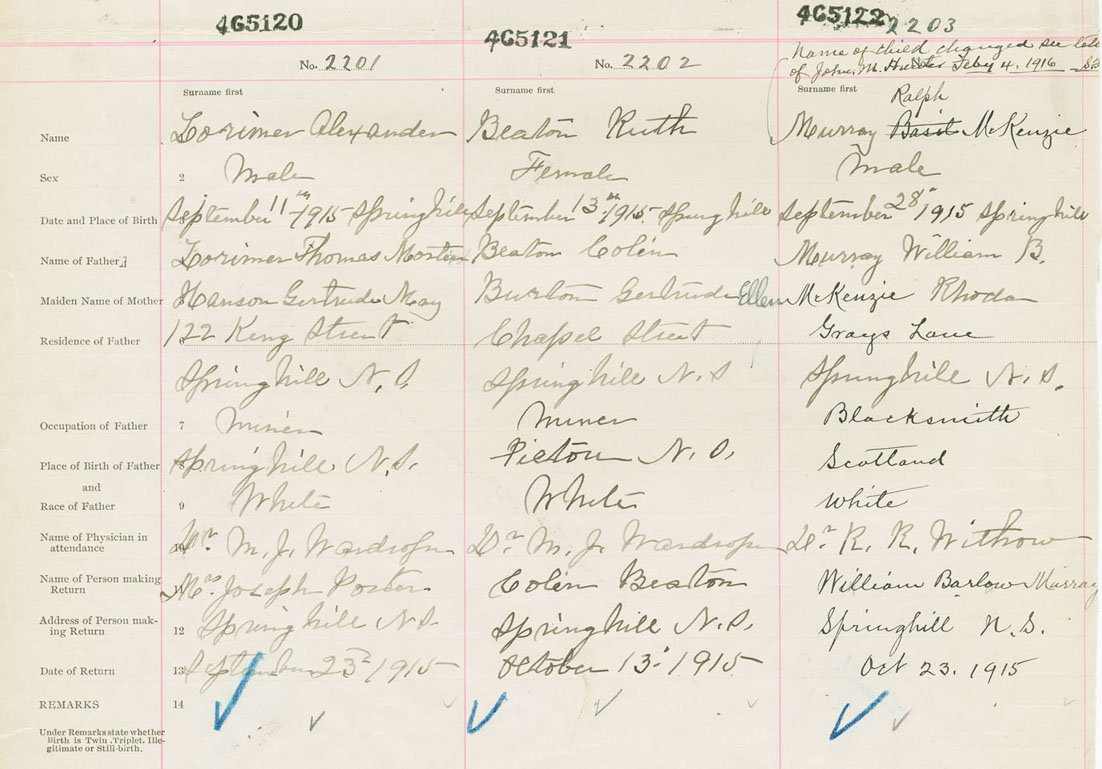 465120
465121
465122
No. 2201
No. 2202
No. 2203
Name of child changed see
of John M. Feby 4. 1916
Surname first
Surname first
Surname first
Ralph
Name Lorimer Alexander Beaton Ruth Murray Basil McKenzie
Sex 2 Male Female Male
Date and Place of Birth September 11th 1915 Springhill September 13th 1915 Springhill September 28" 1915 Springhill
Name of Father Lorimer Thomas Beaton Colin Murray William B.
Maiden Name of Mother Hanson Gertrude May Burton Gertrude Ellen McKenzie Rhoda
Residence of Father 6 122 King Street Chapel Street Grays Lane
Springhill N.S. Springhill N.S Springhill N.S.
Occupation of Father 7 Miner Miner Blacksmith
Place of Birth of Father 8 Springhill N.S. Pictou N.S. Scotland
and
Race of Father 9 White White White
Name of Physician in
attendance 10 Dr. M. J. Wardrope Dr. M. J. Wardrope Dr. R. R. Withrow
Name of Person making
Return 11 Mrs Joseph Porter Colin Beaton William Barlow Murray
Address of Person mak-
ing Return 12 Springhill N.S. Springhill N.S. Springhill N.S.
Date of Return 13 September 23rd 1915 October 13" 1915 Oct 23. 1915
REMARKS 14
Under Remarks state whether
Birth is Twin, Triplet, Ille-
gitimate or Still-birth.